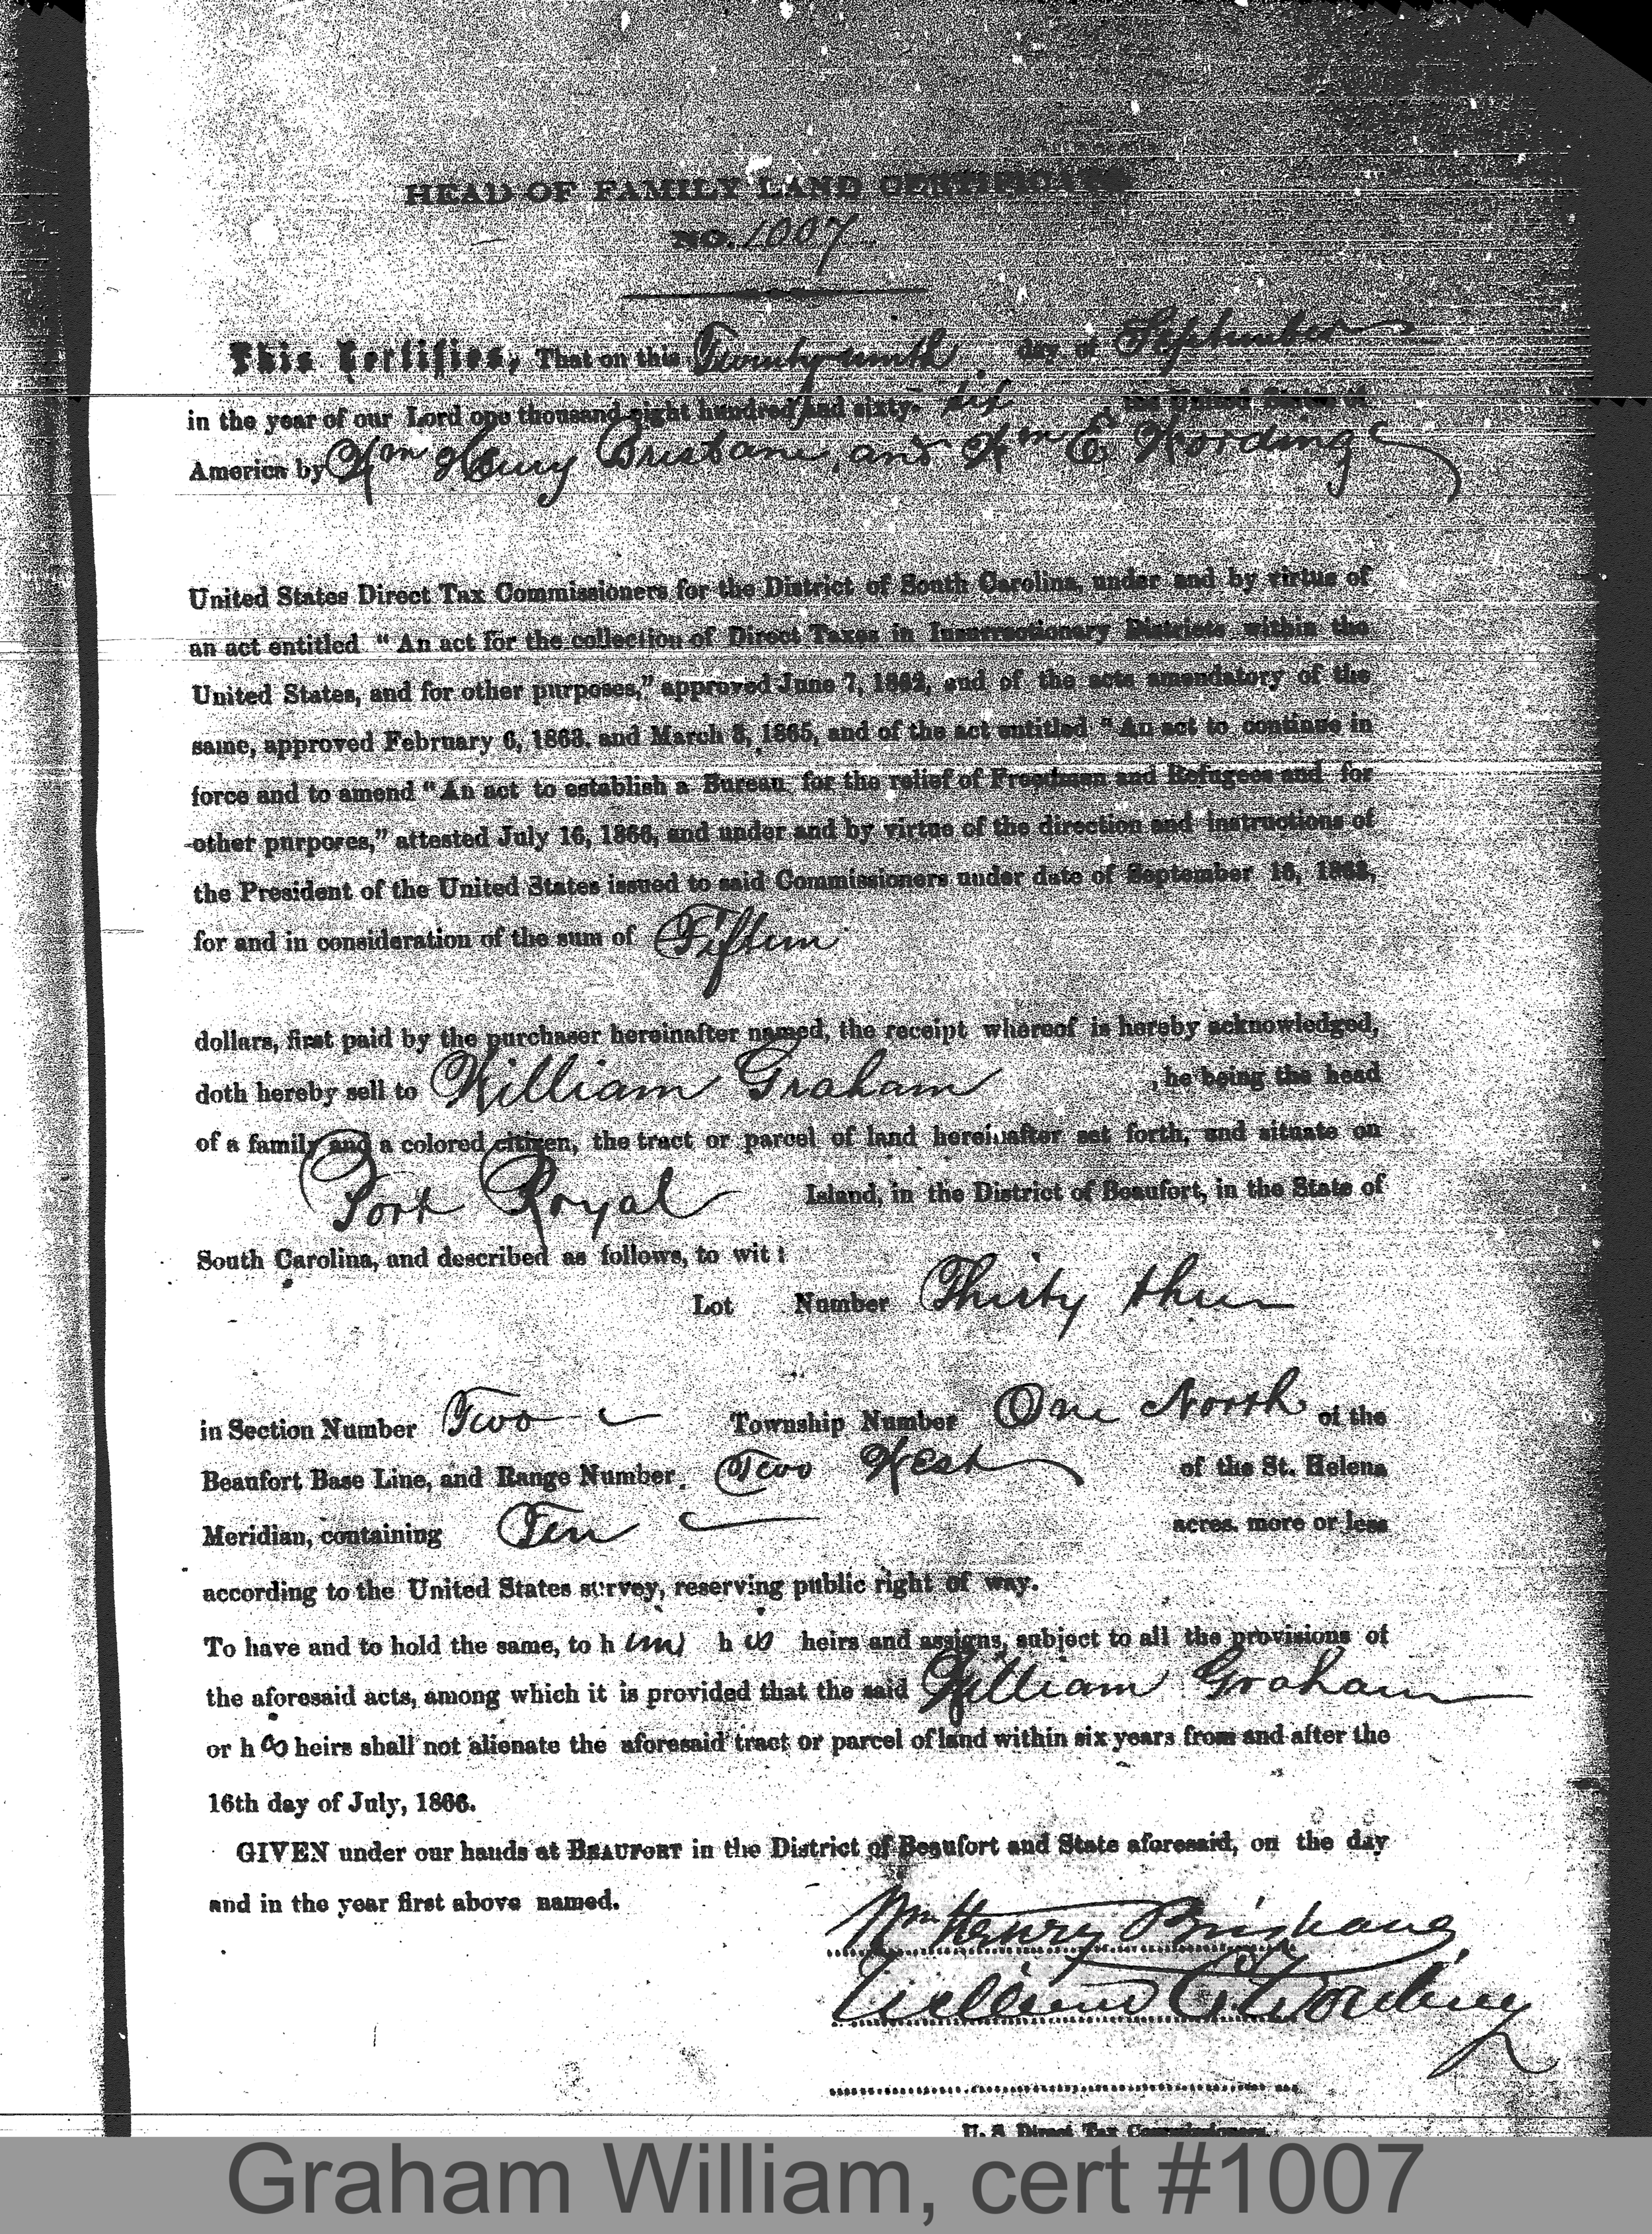 HEAD OF FAMILY LAND CERTIFICATE
NO. 1007
This Certifies, That on this Twenty ninth day of September
in the year of our Lord one thousand eight hundred and sixty- six the United States of
America by Wm Henry Brisbane, and Wm E Wording
United States Direct Tax Commissioners for the District of South Carolina, under and by virtue of
an act entitled "An act for the collection of Direct Taxes in Insurrectionary Districts within the
United States, and for other purposes," approved June 7, 1862, and of the acts amendatory of the
same, approved February 6, 1863, and March 3, 1865, and of the act entitled "An act to continue in
force and to amend "An act to establish a Bureau for the relief of Freedmen and Refugees and for
other purposes," attested July 16, 1866, and under and by virtue of the direction and instructions of
the President of the United States issued to said Commissioners under date of September 16, 1863,
for and in consideration of the sum of Fifteen
dollars, first paid by the purchaser hereinafter named, the receipt whereof is hereby acknowledged,
doth hereby sell to William Graham , he being the head
of a family and a colored citizen, the tract or parcel of land hereinafter set forth, and situate on
Port Royal Island, in the District of Beaufort, in the State of
South Carolina, and described as follows, to wit:
Lot Number Thirty three
in Section Number Two Township Number One North of the
Beaufort Base Line, and Range Number Two West of the St. Helena
Meridian, containing Ten acres. more or less
according to the United States survey, reserving public right of way.
To have and to hold the same, to him his heirs and assigns, subject to all the provisions of
the aforesaid acts, among which it is provided that the said William Graham
or his heirs shall not alienate the aforesaid tract or parcel of land within six years from and after the
16th day of July, 1866.
GIVEN under our hands at BEAUFORT in the District of Beaufort and State aforesaid, on the day
and in the year first above named.
Wm Henry Brisbane
William E. Wording
U. S. Direct Tax Commissioners.
Graham William, cert #1007